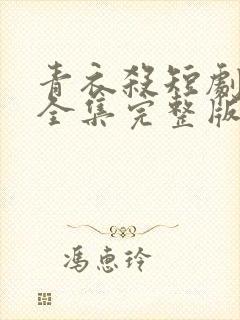 青衣殺短劇
全集完整版
馮惠玲